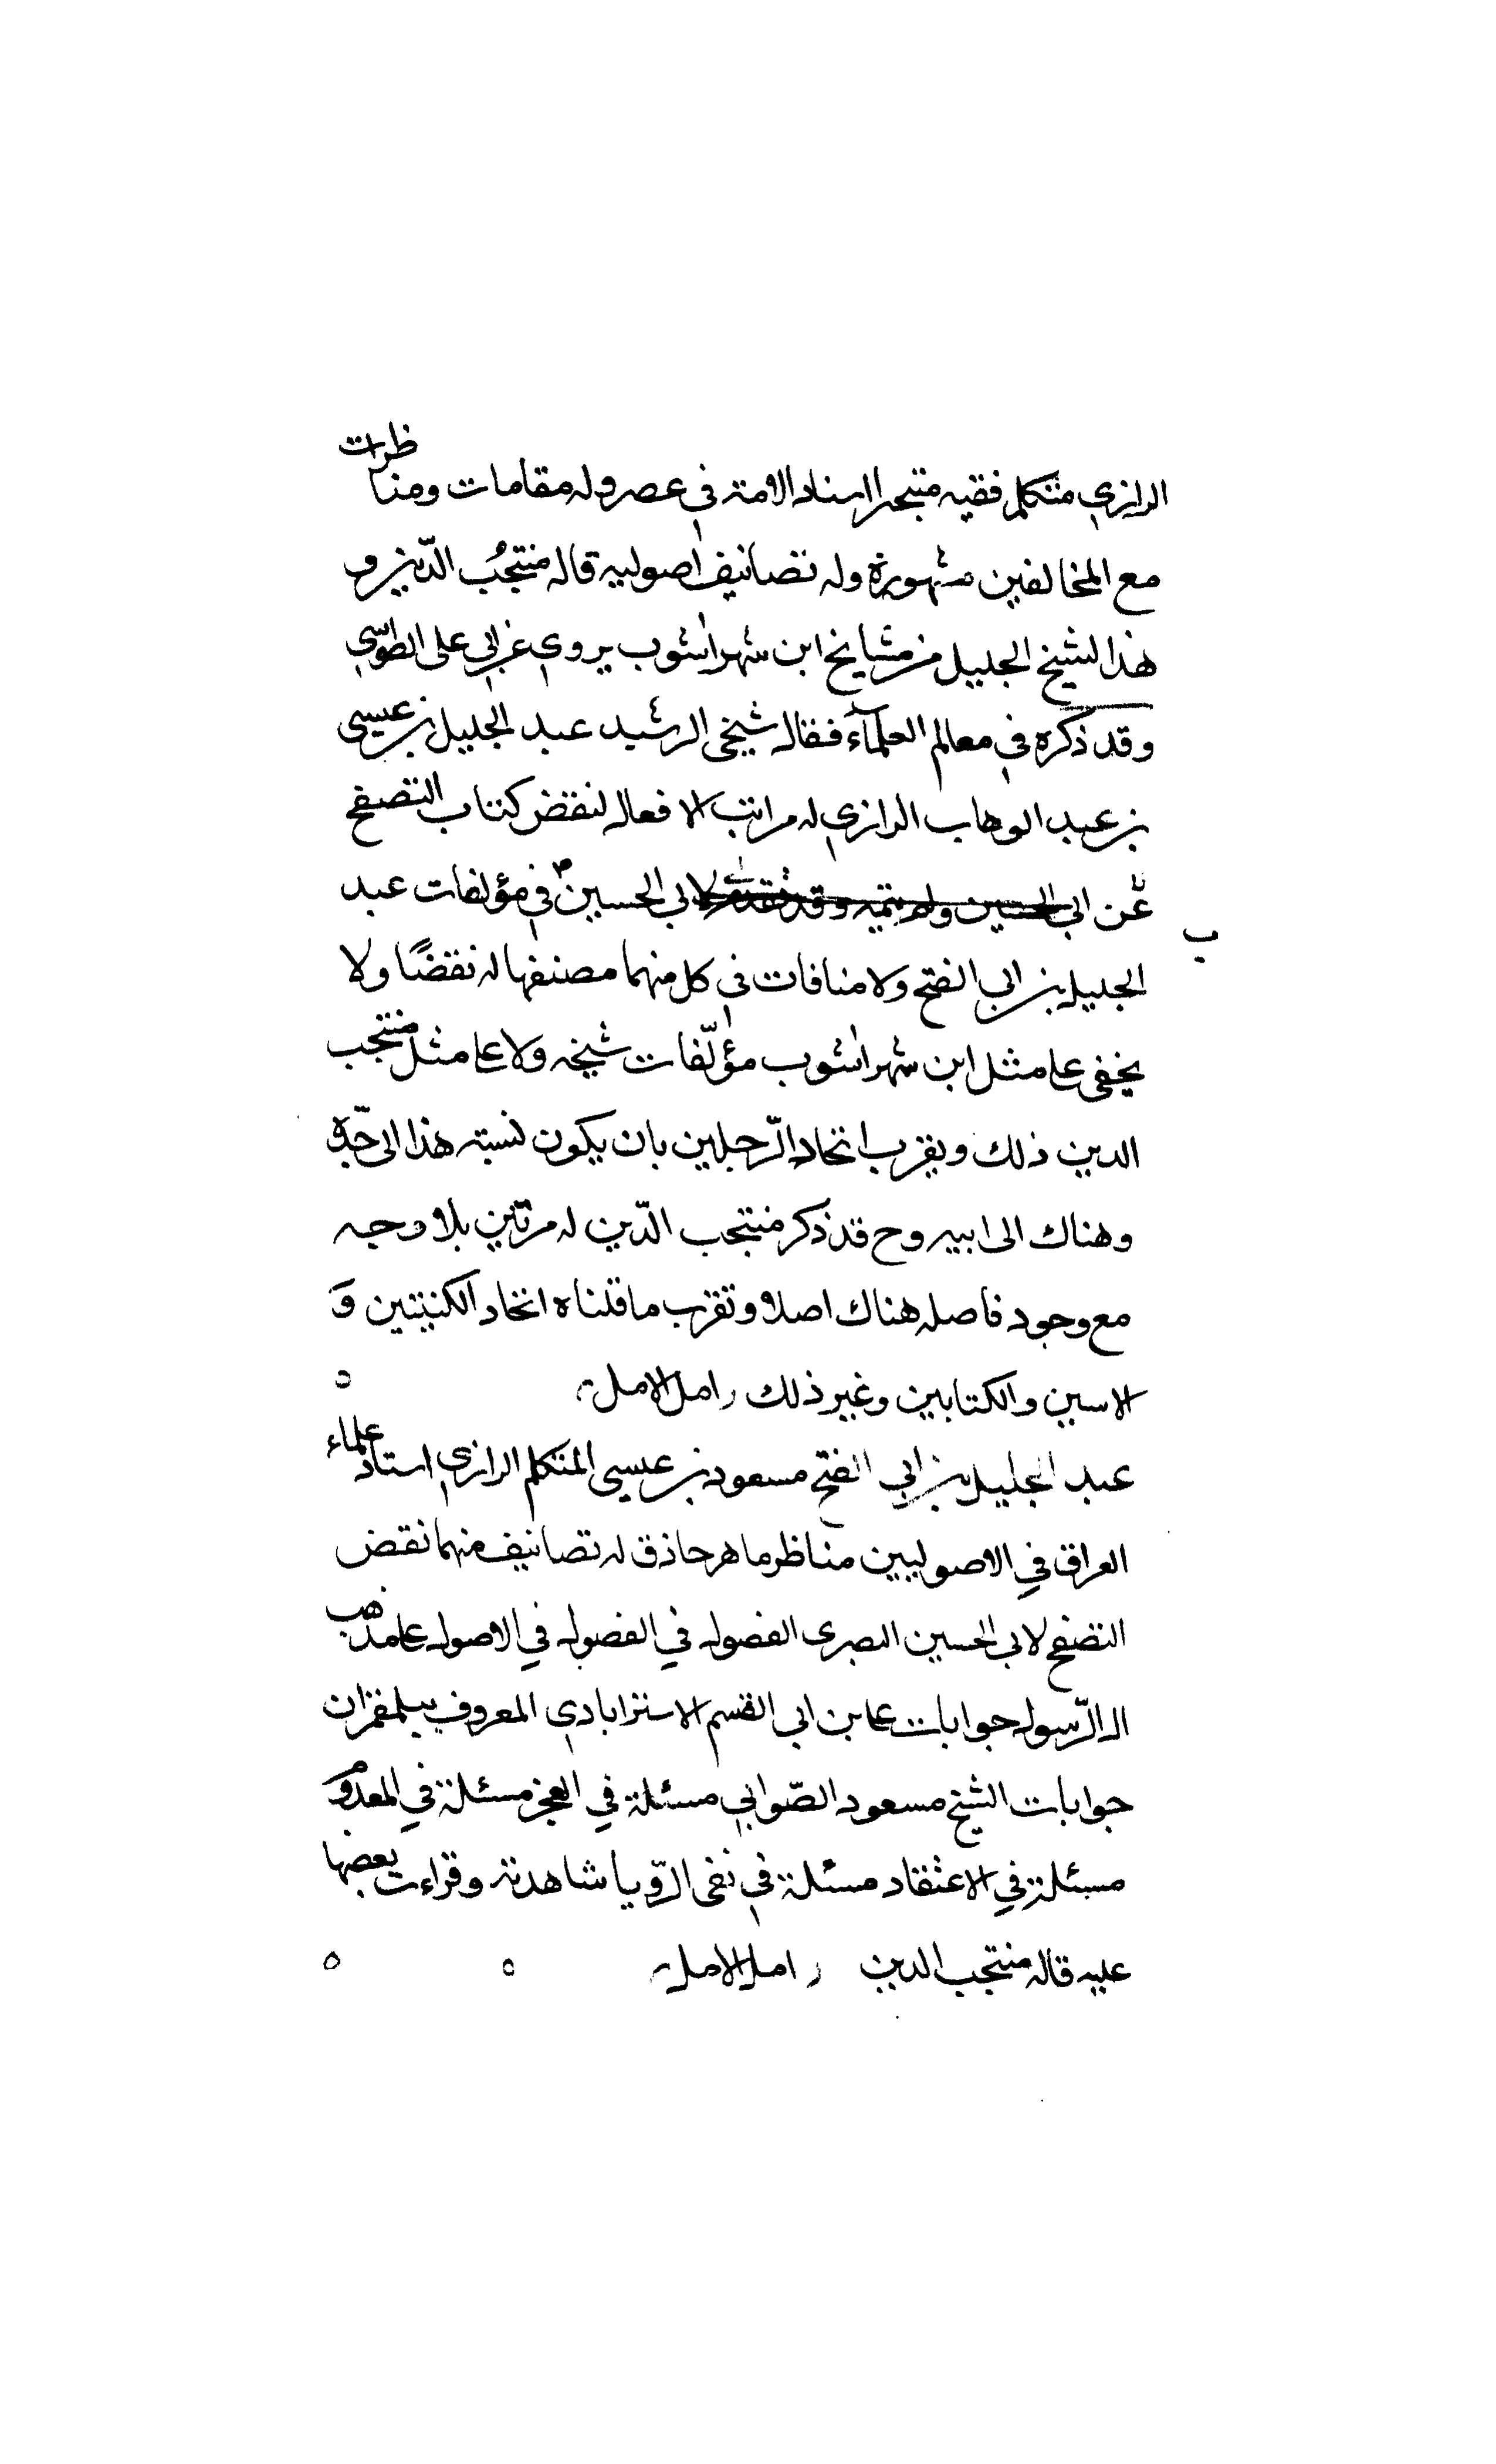 الرازي متكلم فقيه متبحر استاد الائمة في عصره وله مقامات ومناظرات
مع المخالفين مشهورة وله تصانيف اصوليه قاله منتجب الدّين و
هذا لشيخ الجليل من مشايخ ابن شهراشوب يروي عن ابي علي الطوسي
وقد ذكره في معالم العلمآء فقال شيخي الرشيد عبد الجليل بن عيسى
بن عبد الوهاب الرازي له مراتب الافعال نقض كتاب التصفح
عن ابي الحسين ولم يتمه وقد تقدم لابي الحسين في مؤلفات عبد
ب
الجليل بن ابي الفتح ولا منافات في كل منهما مصنفها له نقضًا ولا
يخفى على مثل ابن شهراشوب مؤلّفات شيخه ولا على مثل منتجب
الدين ذلك ويقرب اتحاد الرّجلين بان يكون نسبته هذا الى جدّه
وهناك الى ابيه وح قد ذكر منتجب الدّين له مرتين بلا وجه
مع وجود فاصله هناك اصلا وتقرب ما قلناه اتحاد الكنيتين و
الاسمين والكتابين وغير ذلك امل الامل
عبد الجليل بن ابي الفتح مسعود بن عيسى المتكلم الرازي استاد علماء
العراق في الاصوليين مناظر ماهر حاذق له تصانيف منهما نقض
التصفح لابي الحسين البصرى الفصول في الفصول في الاصول على مذهب
ال الرّسول جوابات على بن ابي القسم الاسترابادي المعروف ببلمقران
جوابات الشيخ مسعود الصّوابي مسئلة في العجز مسئلة في المعدوم
مسئلة في الاعتقاد مسئلة في نفى الرّويا شاهدته وقراءت بعضها
عليه قاله منتجب الدين امل الامل